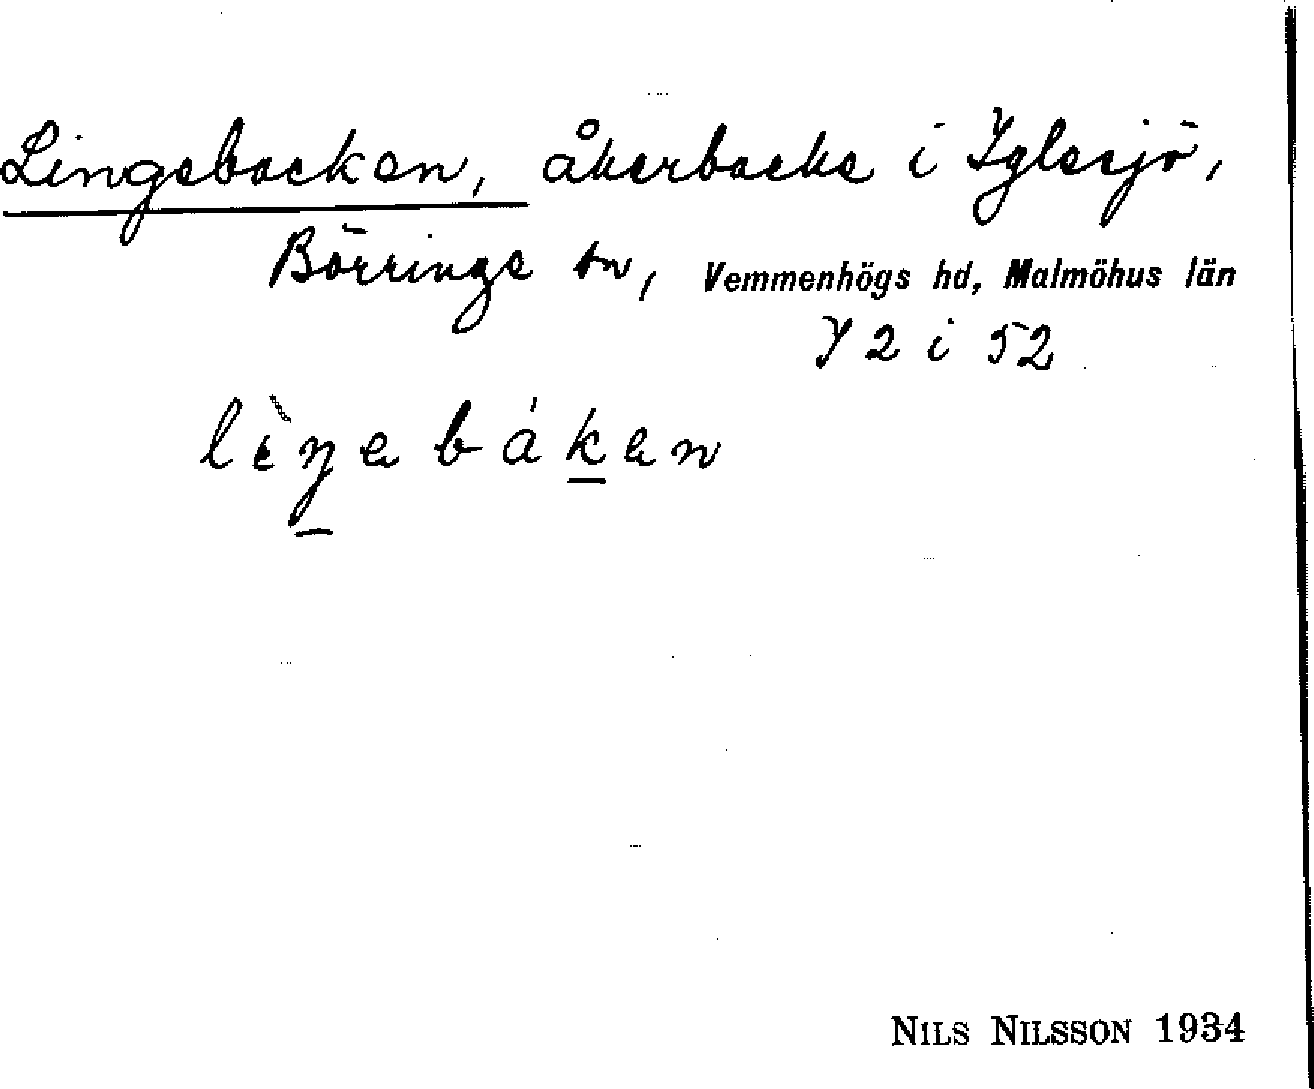 Lingebacken, åkerbacke i Yglesjö,
Börringe sn, Vemmenhögs hd, Malmöhus län
Y 2 i 52
lìŋebáken
NILS NILSSON 1934